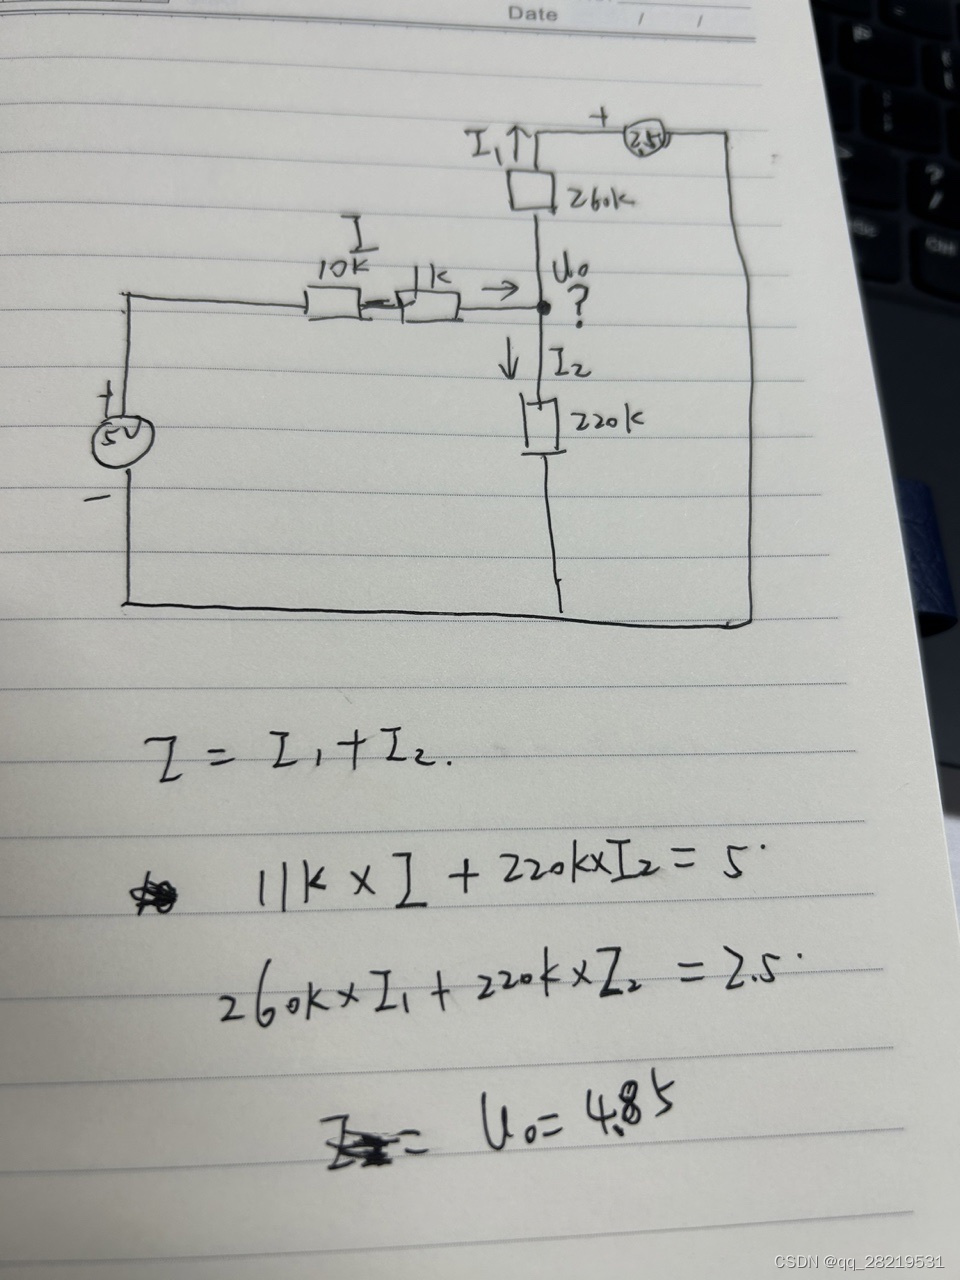 Date / /
I₁ ↑ + 2.5V
260k
I
10k 1k → U₀
?
↓ I₂
+
5V 220k
−
I = I₁ + I₂.
11k × I + 220k×I₂ = 5.
260k×I₁ + 220k×I₂ = 2.5.
= U₀= 4.85
CSDN @qq_28219531